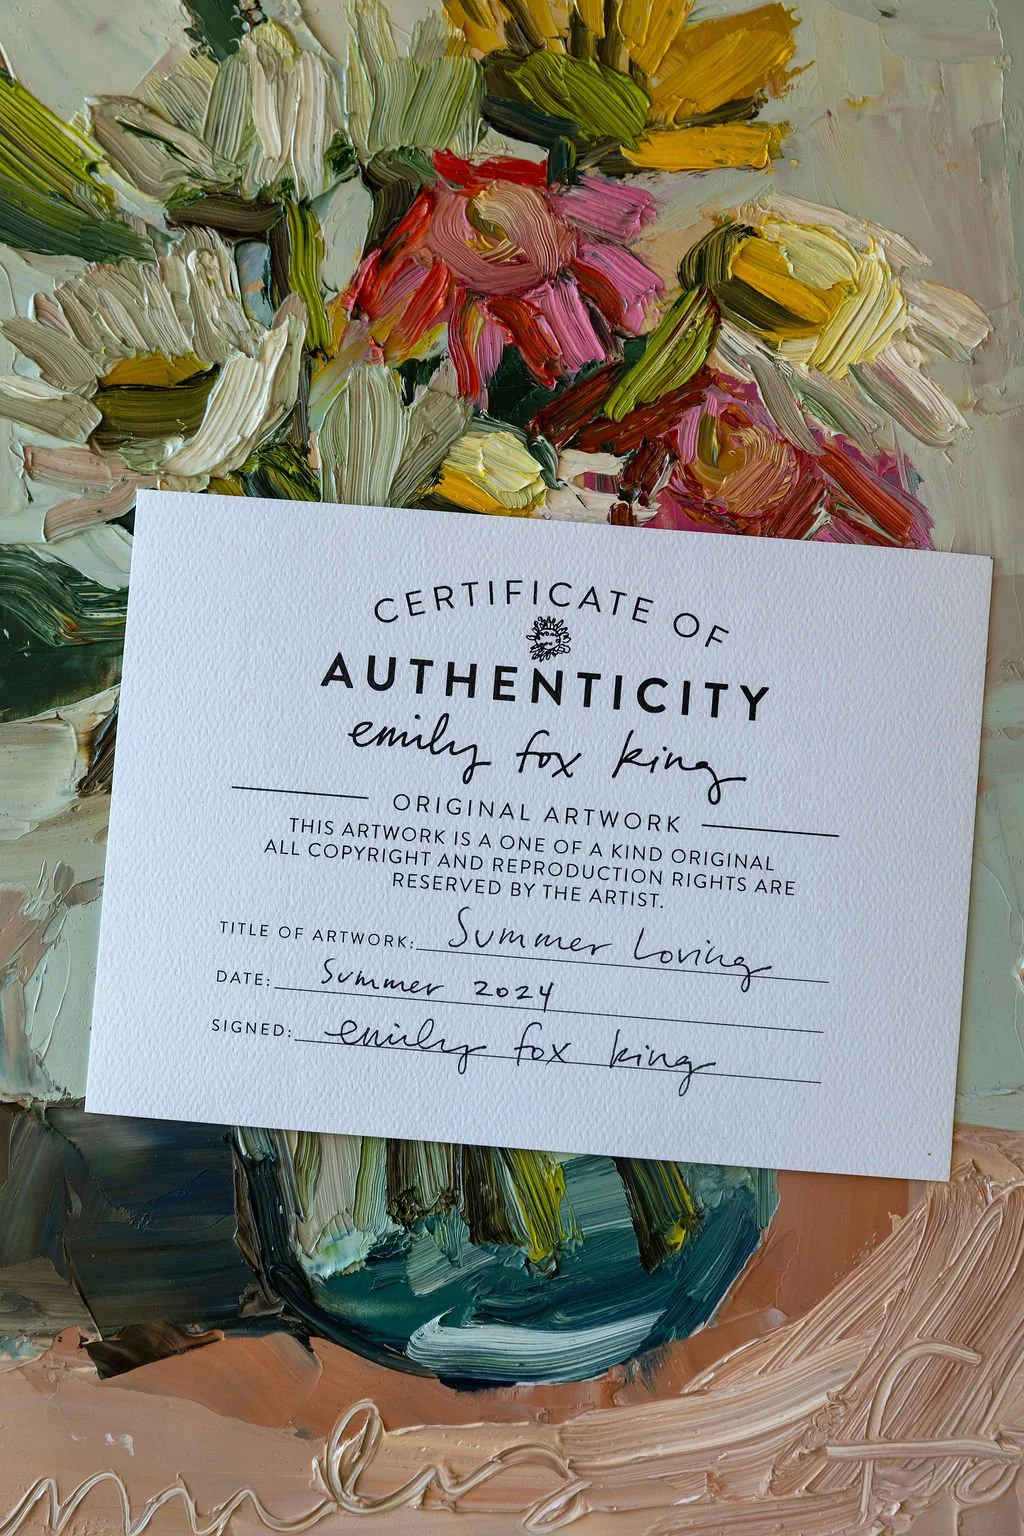 CERTIFICATE OF
AUTHENTICITY
emily fox king
ORIGINAL ARTWORK
THIS ARTWORK IS A ONE OF A KIND ORIGINAL
ALL COPYRIGHT AND REPRODUCTION RIGHTS ARE
RESERVED BY THE ARTIST.
TITLE OF ARTWORK: Summer Loving
DATE: Summer 2024
SIGNED: emily fox king